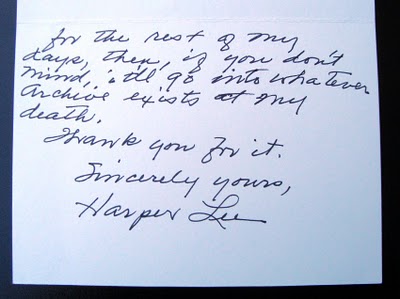 for the rest of my
days; then, if you don't
mind, it'll go into whatever
archive exists at my
death.
Thank you for it.
Sincerely yours,
Harper Lee